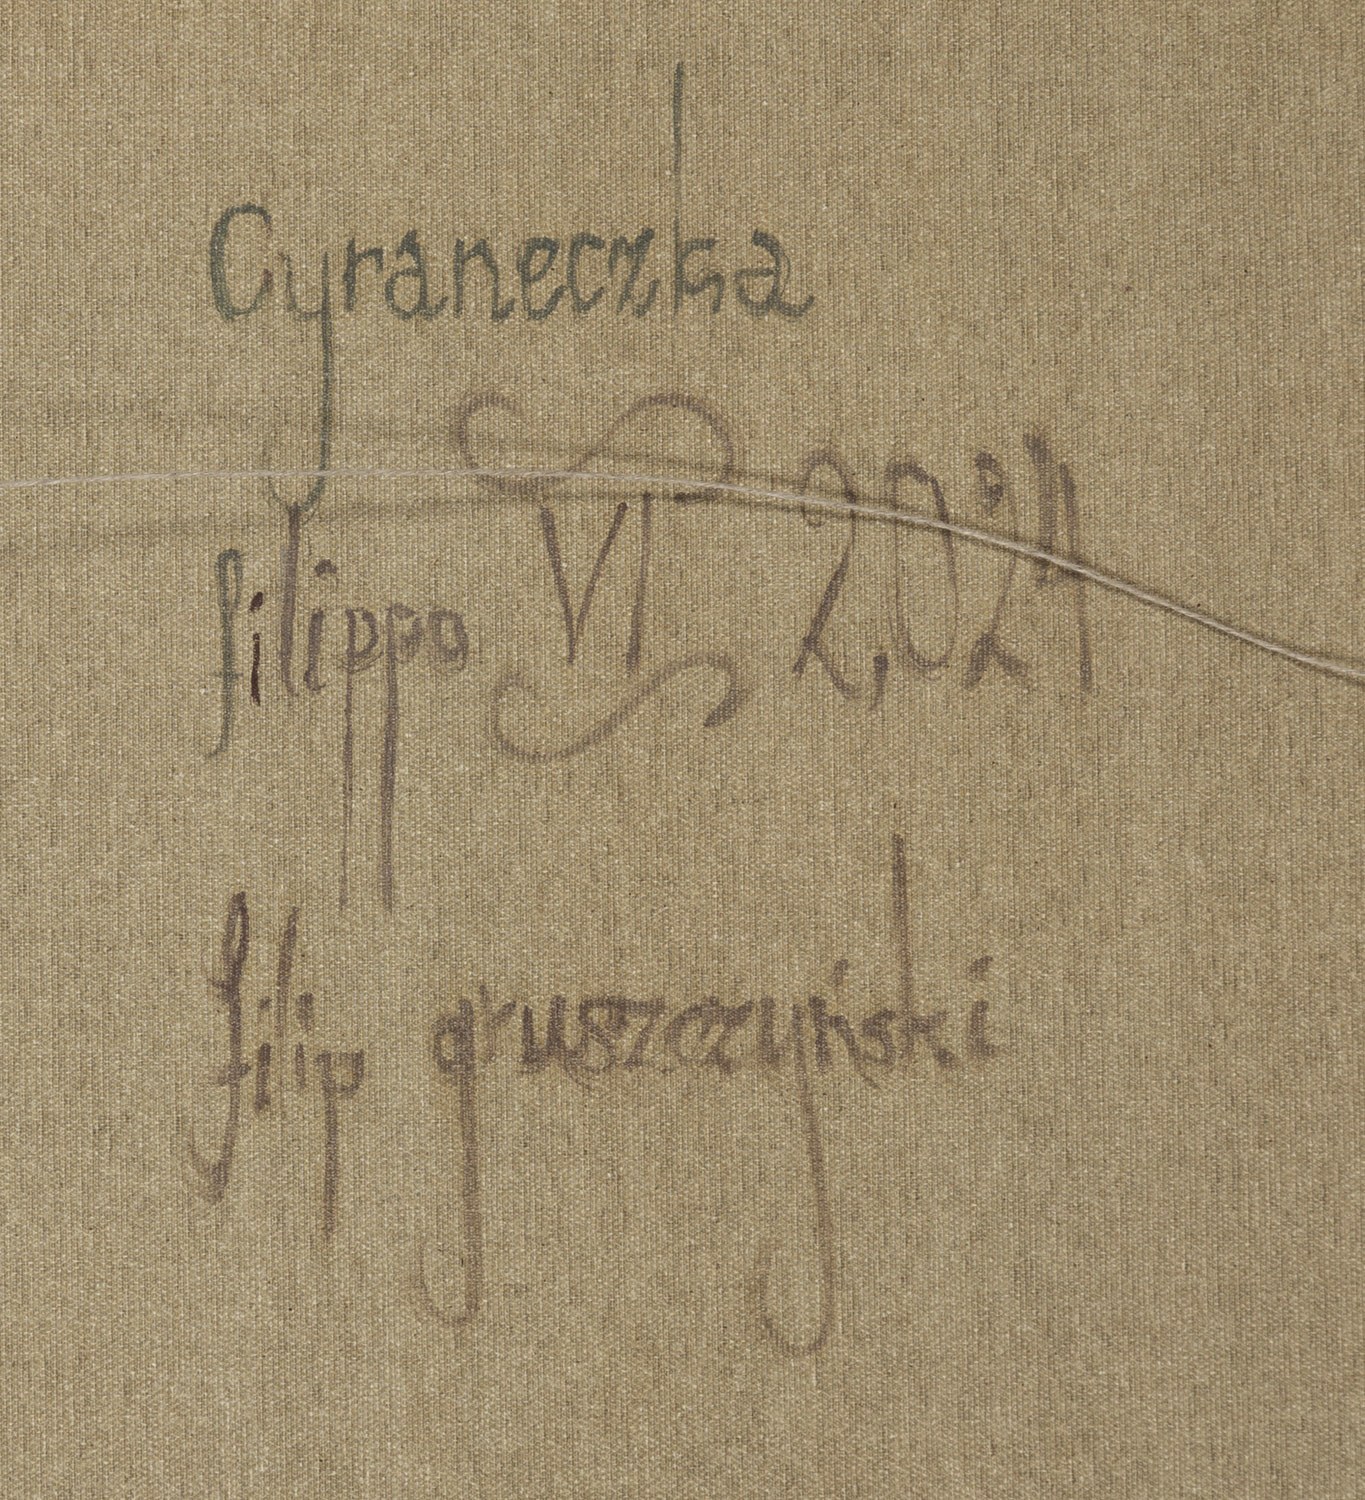 Cyraneczka
filippo VI 2,021
filip gruszczyński